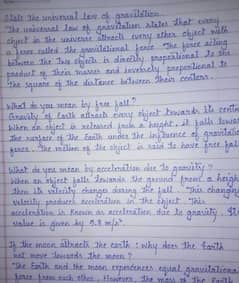 State the universal law of gravitation
The universal law of gravitation states that every
object in the universe attracts every other object with
a force called the gravitational force. The force acting
between the two objects is directly proportional to the
product of their masses and inversely proportional to
the square of the distance between their centers.
What do you mean by free fall?
Gravity of Earth attracts every object towards its cent
When an object is released from a height, it falls towar
the surface of the Earth under the influence of gravitatio
force. The motion of the object is said to have free fal
What do you mean by acceleration due to gravity?
When an object falls towards the ground from a heigh
then its velocity changes during the fall. This changin
velocity produces acceleration in the object. This
acceleration is known as acceleration due to gravity. Its
value is given by 9.8 m/s².
If the moon attracts the earth : why does the Earth
not move towards the moon?
The Earth and the moon experience equal gravitationa
force from each other. However, the mass of the Earth